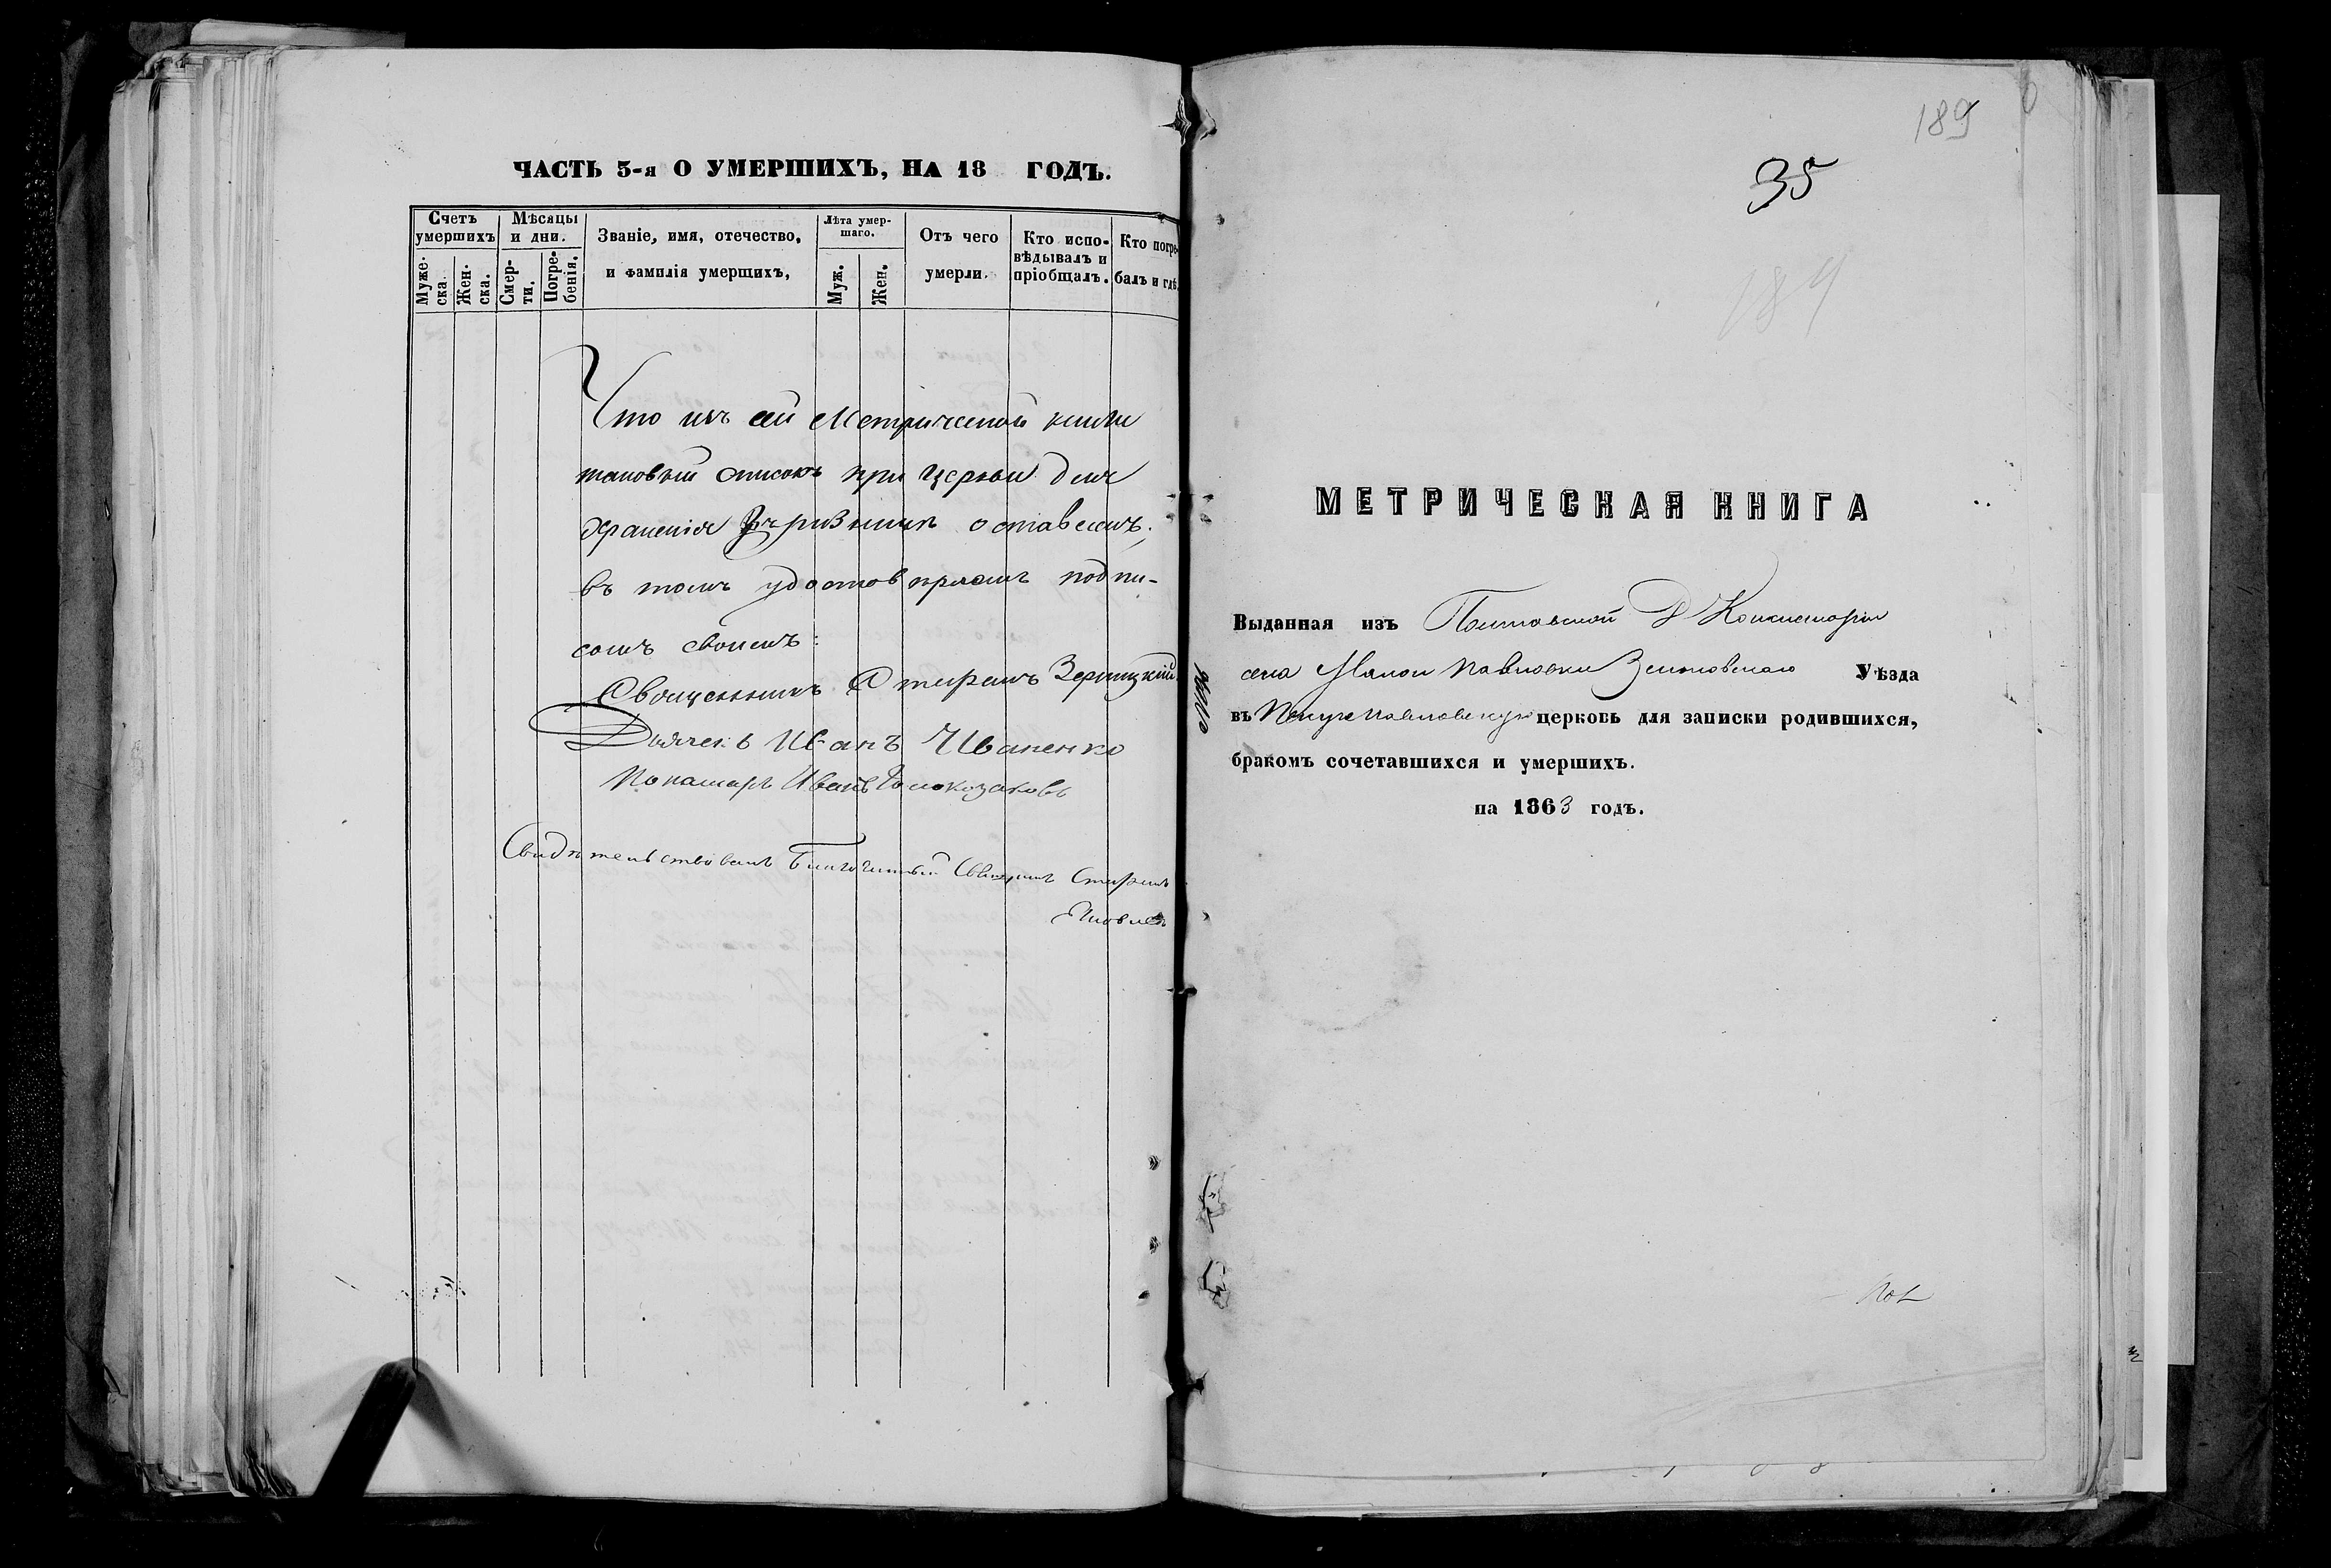 ЧАСТЬ 3-я О УМЕРШИХЪ, НА 18 ГОДЪ.
Счетъ умершихъ
Мѣсяцы и дни.
Званіе, имя, отечество, и фамилія умершихъ,
Лѣта умершаго.
Отъ чего умерли.
Кто исповѣдывалъ и пріобщалъ.
Кто погребалъ и гдѣ.
Мужеска.
Женска.
Смерти.
Погребенія.
Муж.
Жен.
Что изъ сей Метрической книги
таковый списокъ при Церкви для
храненія въ ризницѣ оставленъ;
въ томъ удостовѣряемъ подпи-
сомъ своимъ:
Священникъ Стефанъ
Дьячекъ Иванъ Иваненко
Понамарь Иванъ
Свидѣтельствовалъ Благочинный Священ Стефанъ
Яковлевъ
189
35
189
МЕТРИЧЕСКАЯ КНИГА
Выданная изъ Полтавской Д Консисторіи
села Малой Павловки Зеньковскаго Уѣзда
въ церковь для записки родившихся,
бракомъ сочетавшихся и умершихъ.
на 1863 годъ.